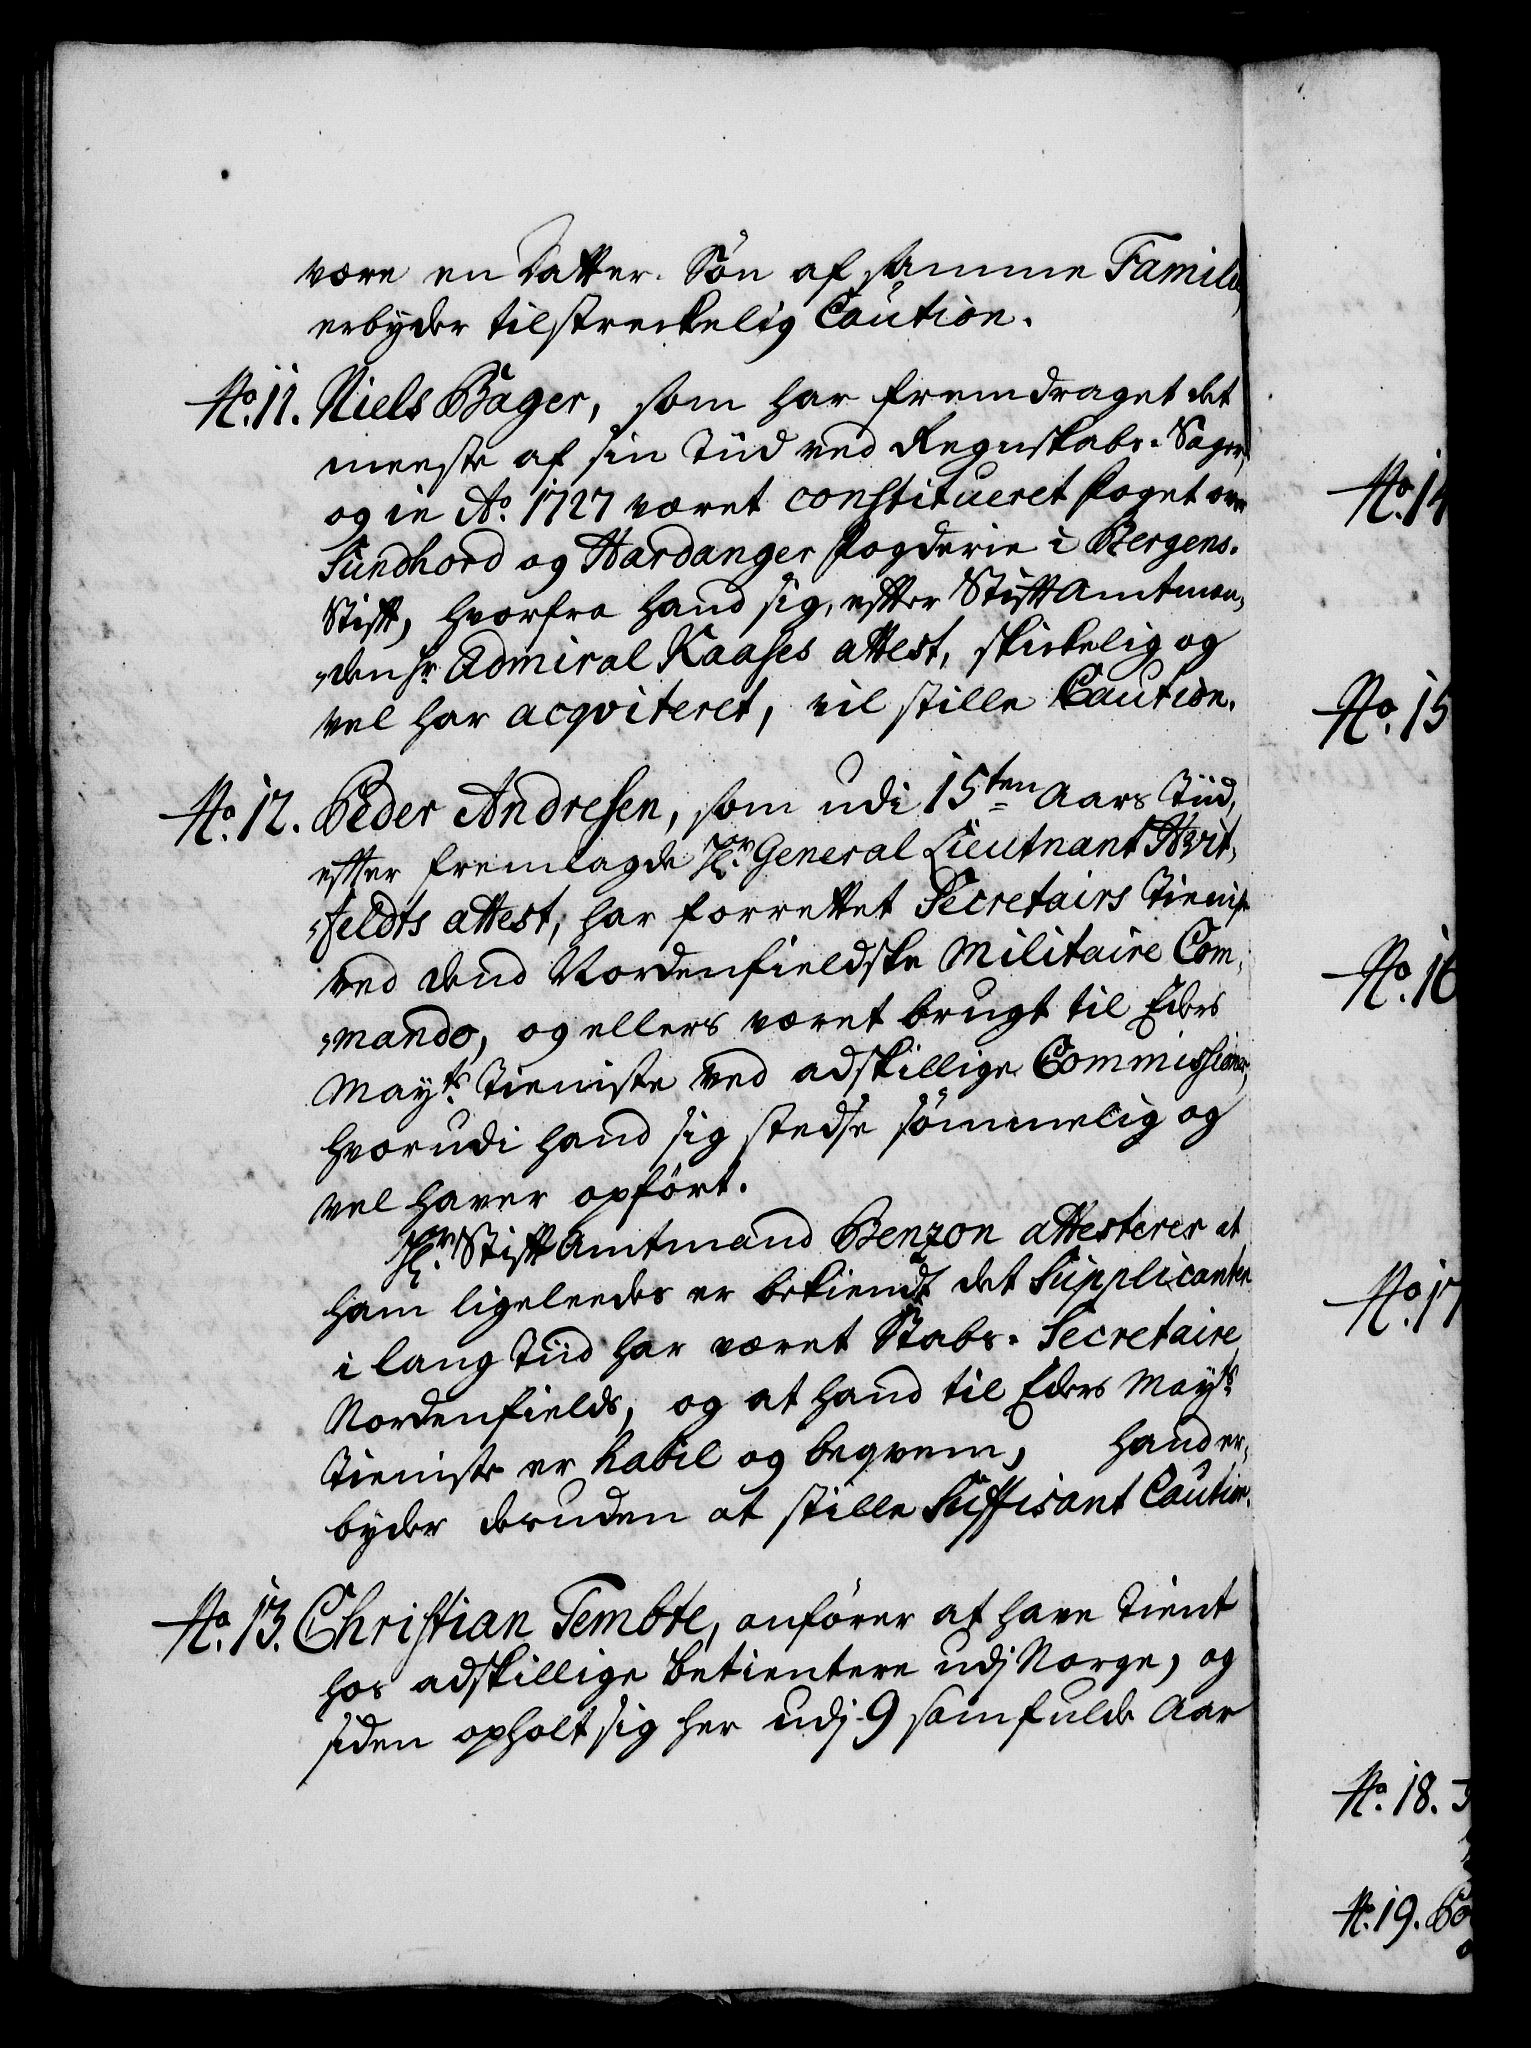 være en Datter-Sön af samme Famile,
erbyder tilstreckelig Caution.
No. 11. Niels Bager, som har fremdraget det
meeste af sin Tiid ved Regnskabs-Sager,
og in Ao. 1727 været constitueret Foget over
Sundhord og Hardanger Fogderie i Bergens-
Stift, hvorfra hand sig, efter Stift Amtman-
den hr. Admiral Kaases attest, skickelig og
vel har acqviteret, vil stille Caution.
No. 12. Peder Andresen, som udi 15ten Aars Tiid,
efter fremlagde Hr. General Lieutnant Hvit-
feldts attest, har forrettet Secretairs Tieniste
ved dend Nordenfieldske Militaire Com-
mando, og ellers været brugt til Eders
Mayts. Tieniste ved adskillige Commissioner,
hvorudi hand sig stedse sömmelig og
vel haver opfört.
Hr. Stift Amtmand Benzon attesterer at
ham ligeleedes er bekiendt det Supplicanten
i lang Tiid har været Stabs-Secretaire
Nordenfields, og at hand til Eders Mayts
Tieniste er habil og beqvem, hand er-
byder desuden at stille Suffisant Caution.
No. 13. Christian Tembte, anförer at have tient
hos adskillige Betientere udj Norge, og
siden opholt sig her udj 9 samfulde Aar
No. 14
No. 15
No. 16
No. 17
No. 18.
No. 19.